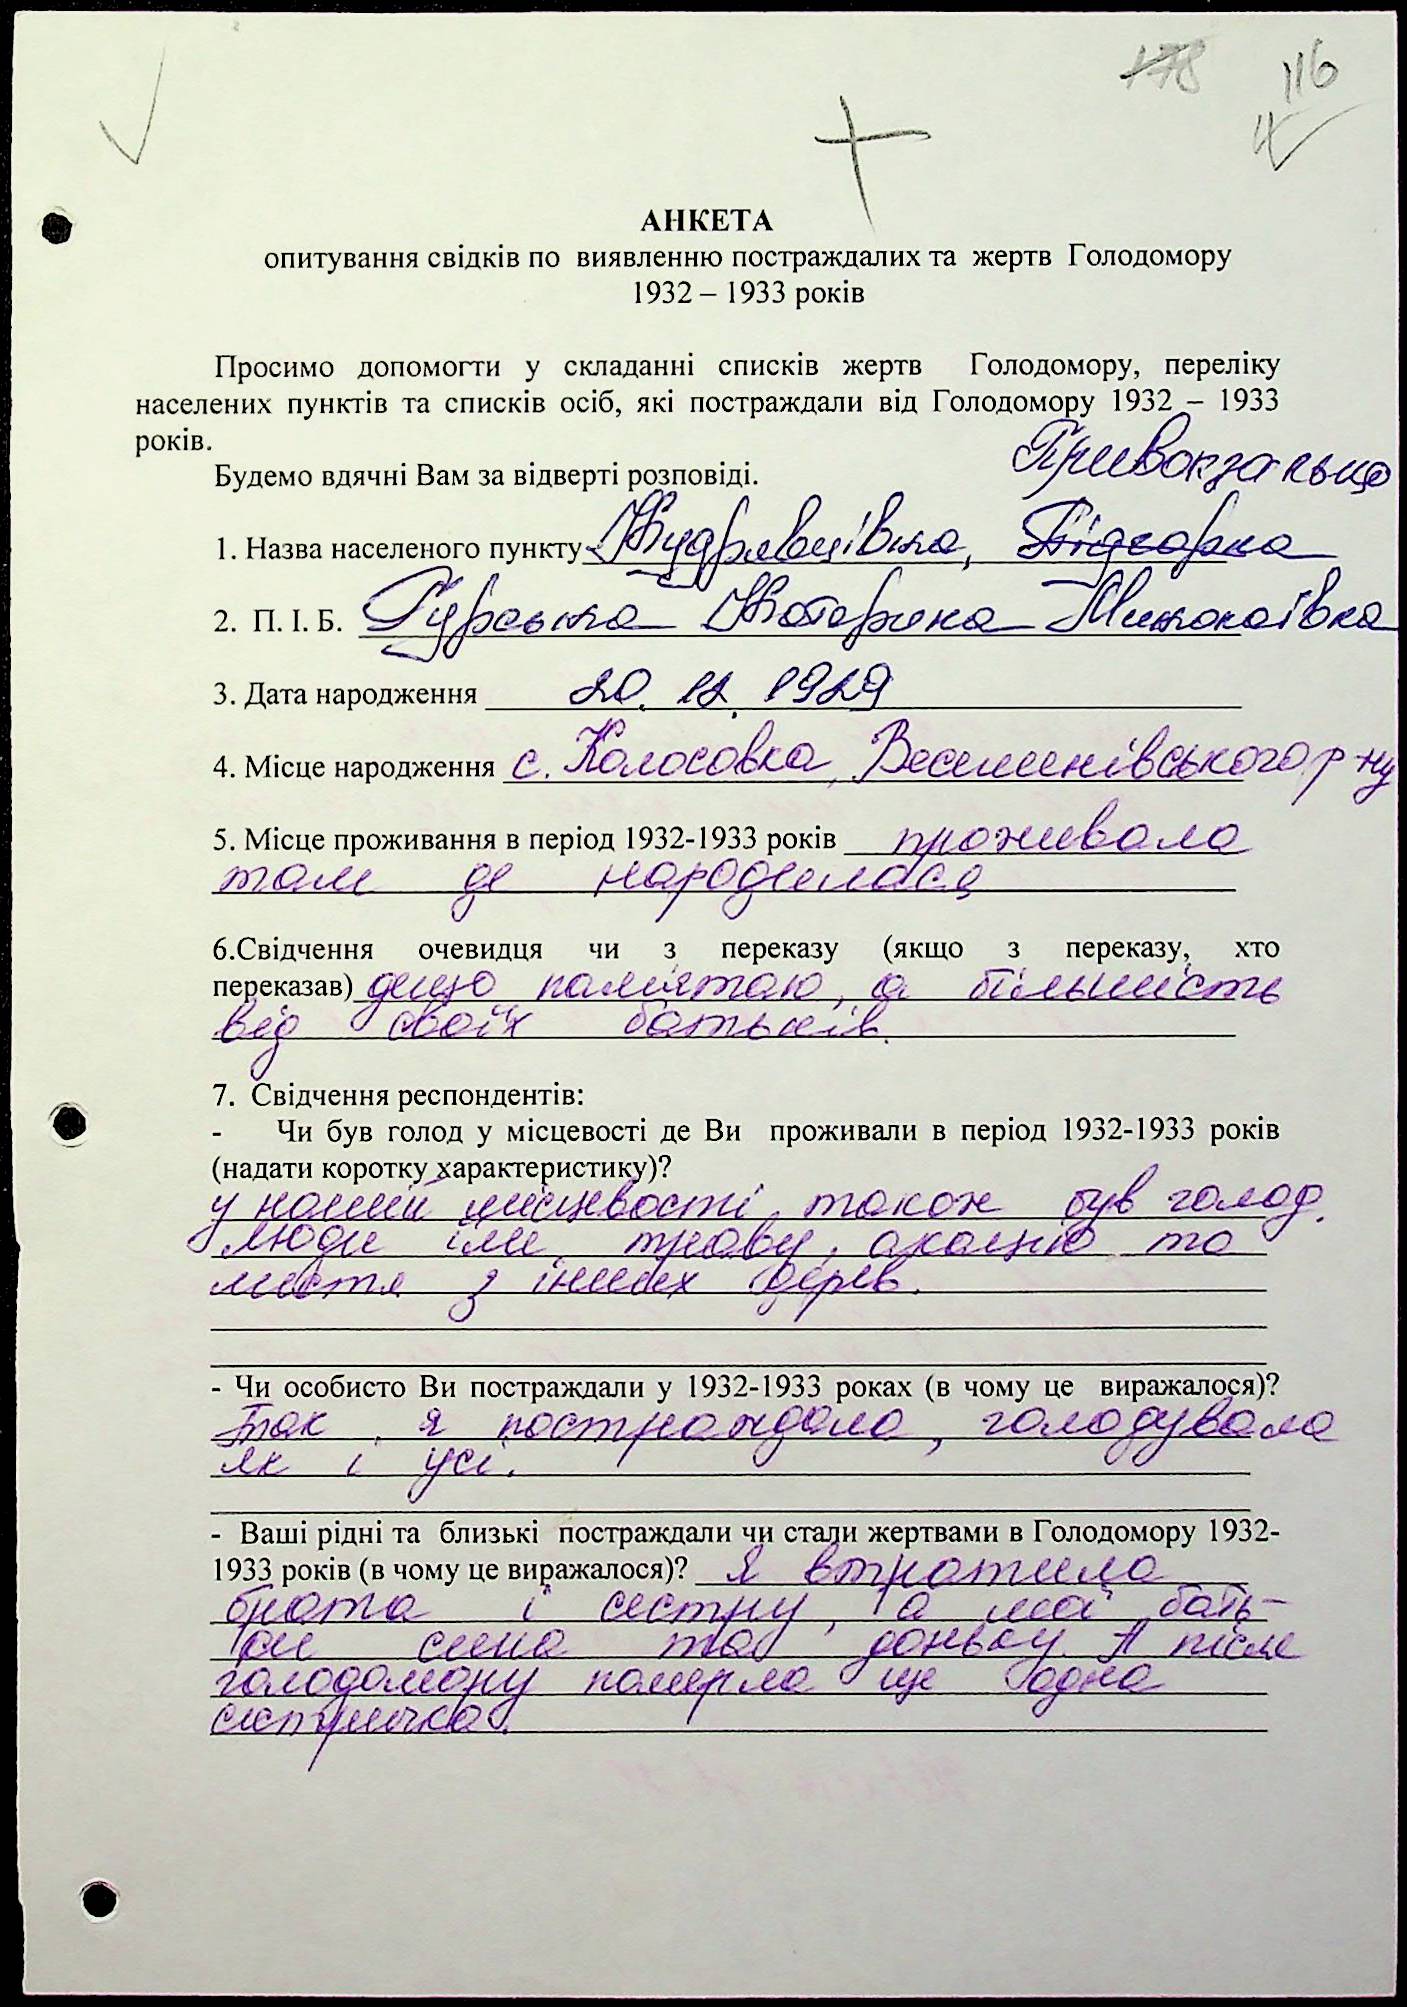 178 116
4
АНКЕТА
опитування свідків по виявленню постраждалих та жертв Голодомору
1932 – 1933 років
Просимо допомогти у складанні списків жертв Голодомору, переліку
населених пунктів та списків осіб, які постраждали від Голодомору 1932 – 1933
років.
Будемо вдячні Вам за відверті розповіді.
Привокзальще
1. Назва населеного пункту Кудрявцівка, Підгорна
2. П. І. Б. Гурська Катерина Миколаївна
3. Дата народження 20. 12. 1929
4. Місце народження с. Колосовка, Веселинівського р-ну
5. Місце проживання в період 1932-1933 років проживала
там де народилася
6.Свідчення очевидця чи з переказу (якщо з переказу, хто
переказав) дещо пам'ятаю, а більшість
від своїх батьків.
7. Свідчення респондентів:
- Чи був голод у місцевості де Ви проживали в період 1932-1933 років
(надати коротку характеристику)?
у нашій місцевості також був голод.
люди їли траву, акацію та
листя з інших дерев.
- Чи особисто Ви постраждали у 1932-1933 роках (в чому це виражалося)?
Так, я постраждала, голодувала
як і усі.
- Ваші рідні та близькі постраждали чи стали жертвами в Голодомору 1932-
1933 років (в чому це виражалося)? Я втратила
брата і сестру, а мої бать-
ки сина та доньку. А після
голодомору померла ще одна
сестричка.